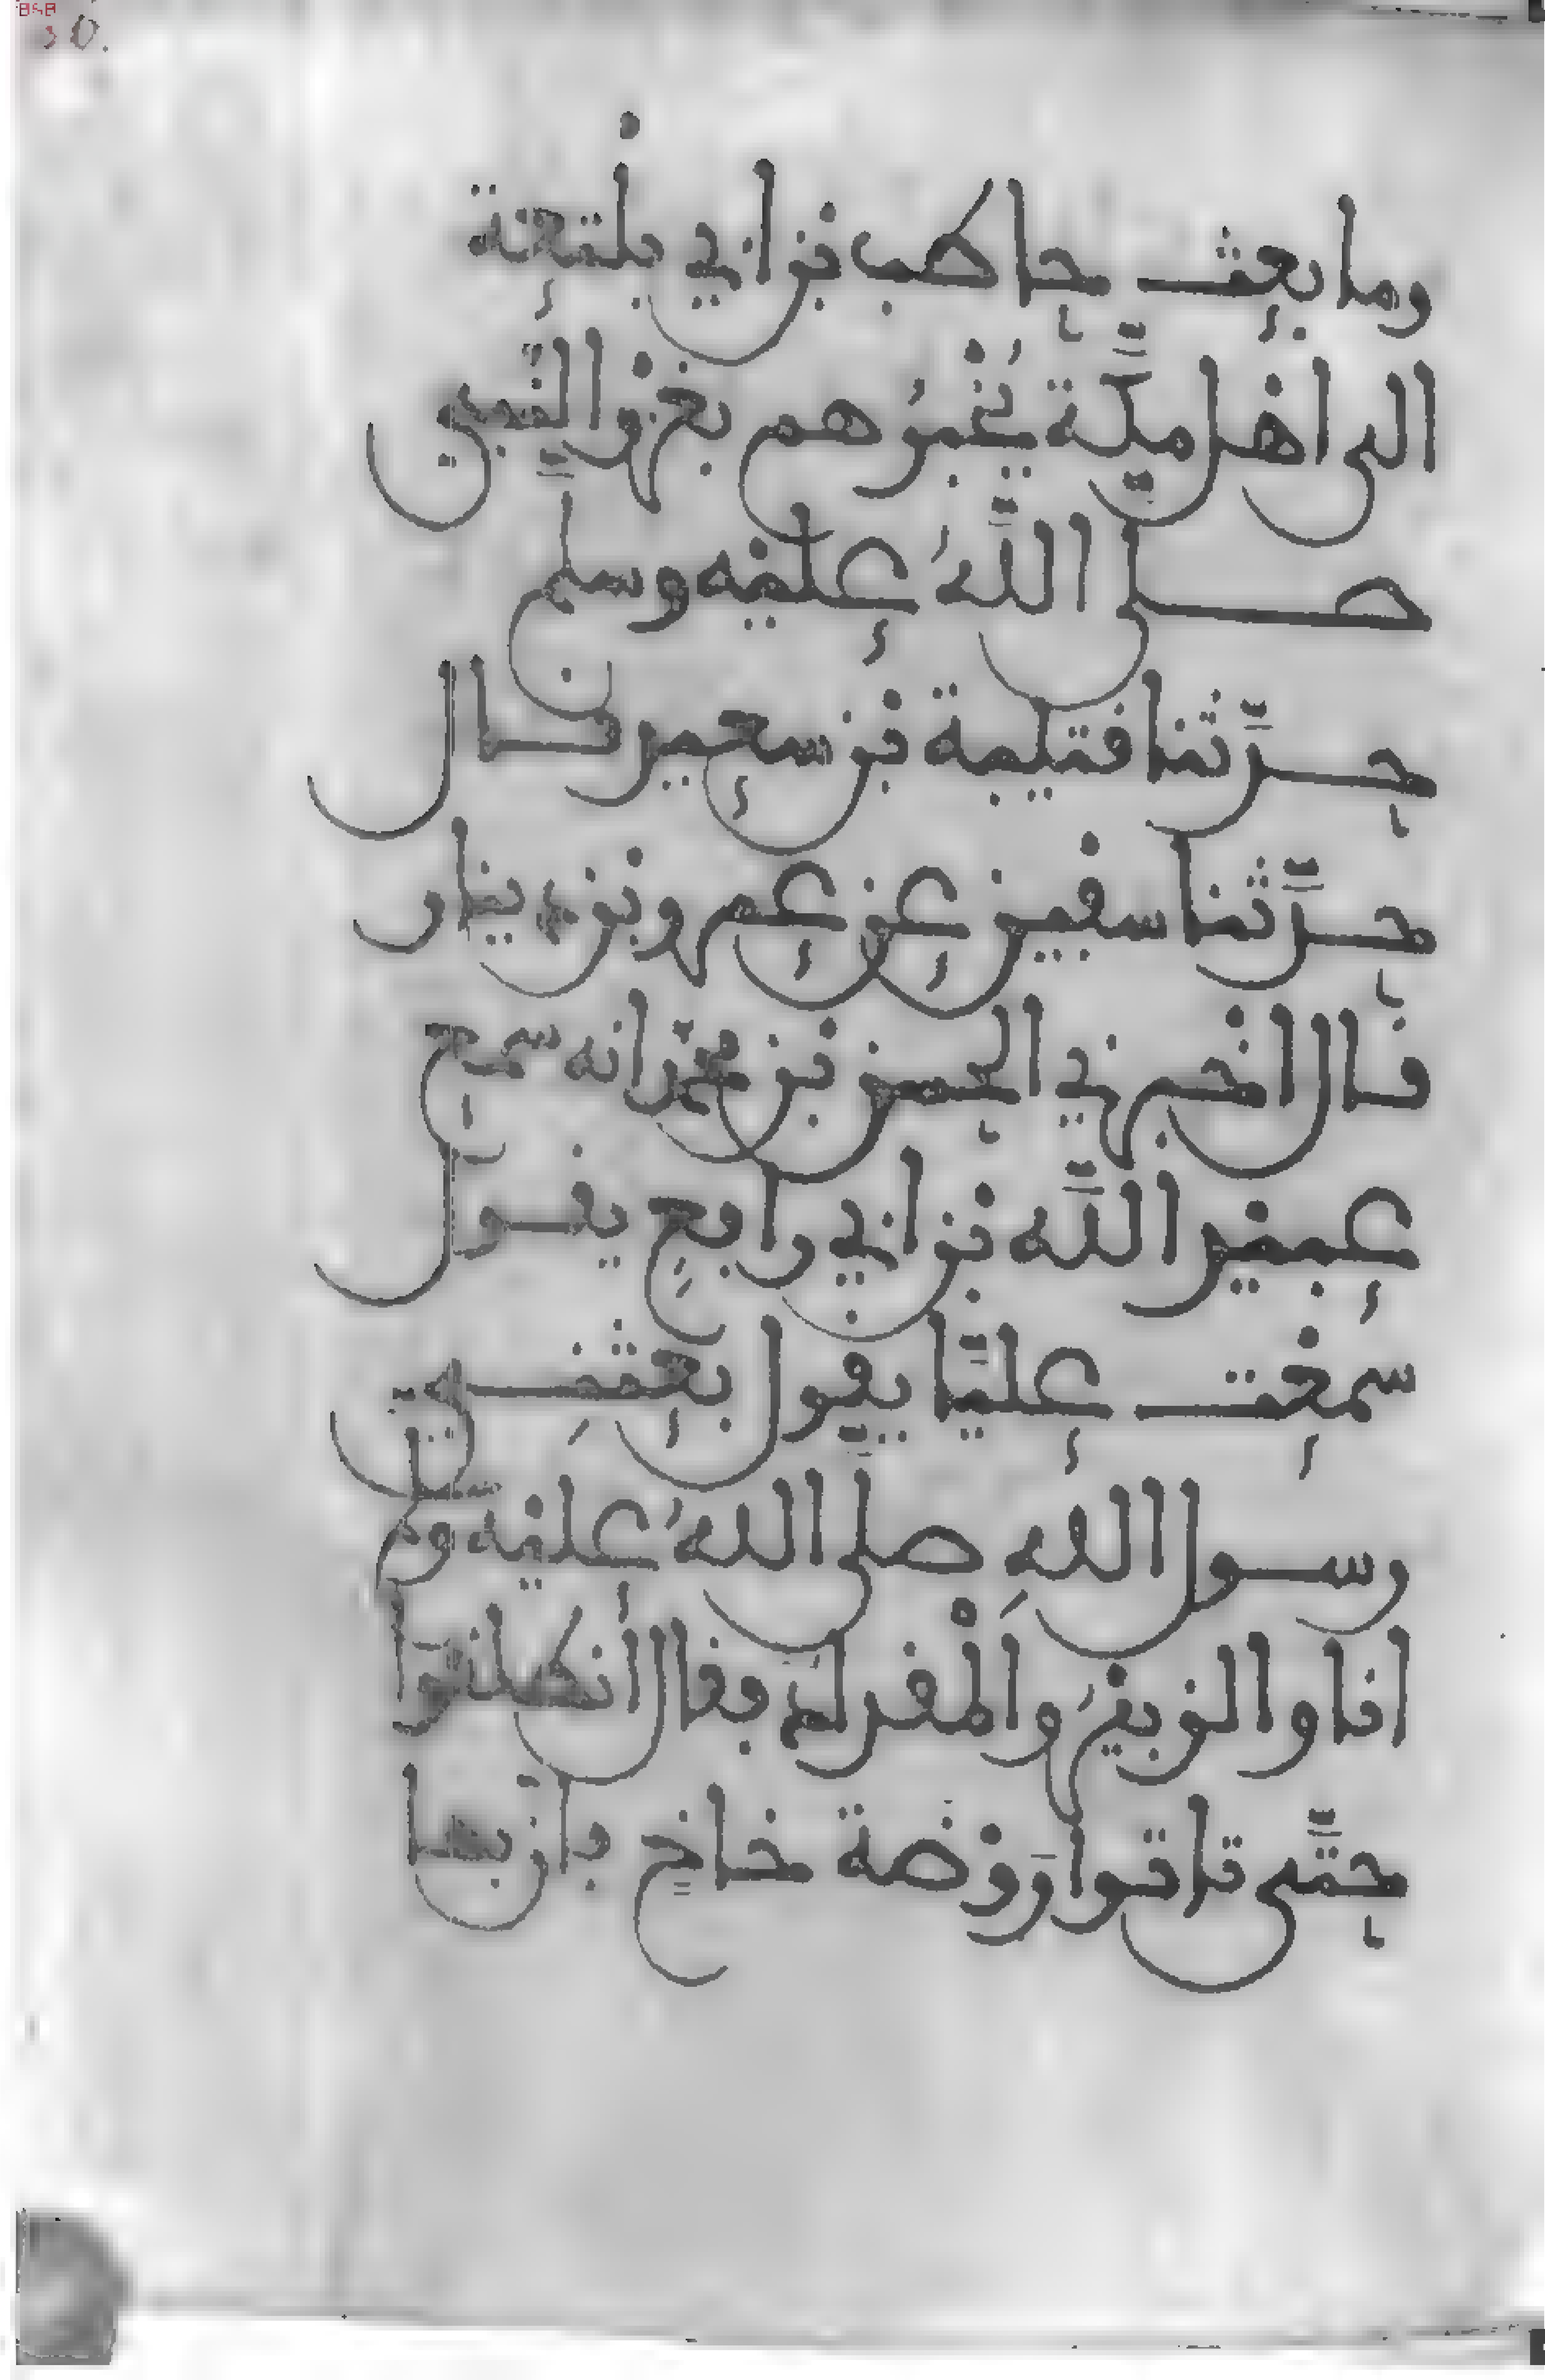 BSB
30.
وما بعث حاطب بن ابي بلتعة
الى اهل مكّة يُخْبرُهم بغزو النّبي
صلى اللّهُ عليه وسلّم
حدّثنا قتيبة بن سعيد قال
حدّثنا سفين عن عمرو بن دينار
قال اخبرني الحسن بن محمّد انه سمع
عبيد اللّه بن ابي رافعٍ يقول
سمعْت عليّا يقول بعثنِي
رسول اللهِ صلّى اللهُ عليه وسلم
انا والزبيرُ والْمقدادَ فقال انطلقوا
حتّى تاتوا رَوْضة خاخٍ فانّ بها